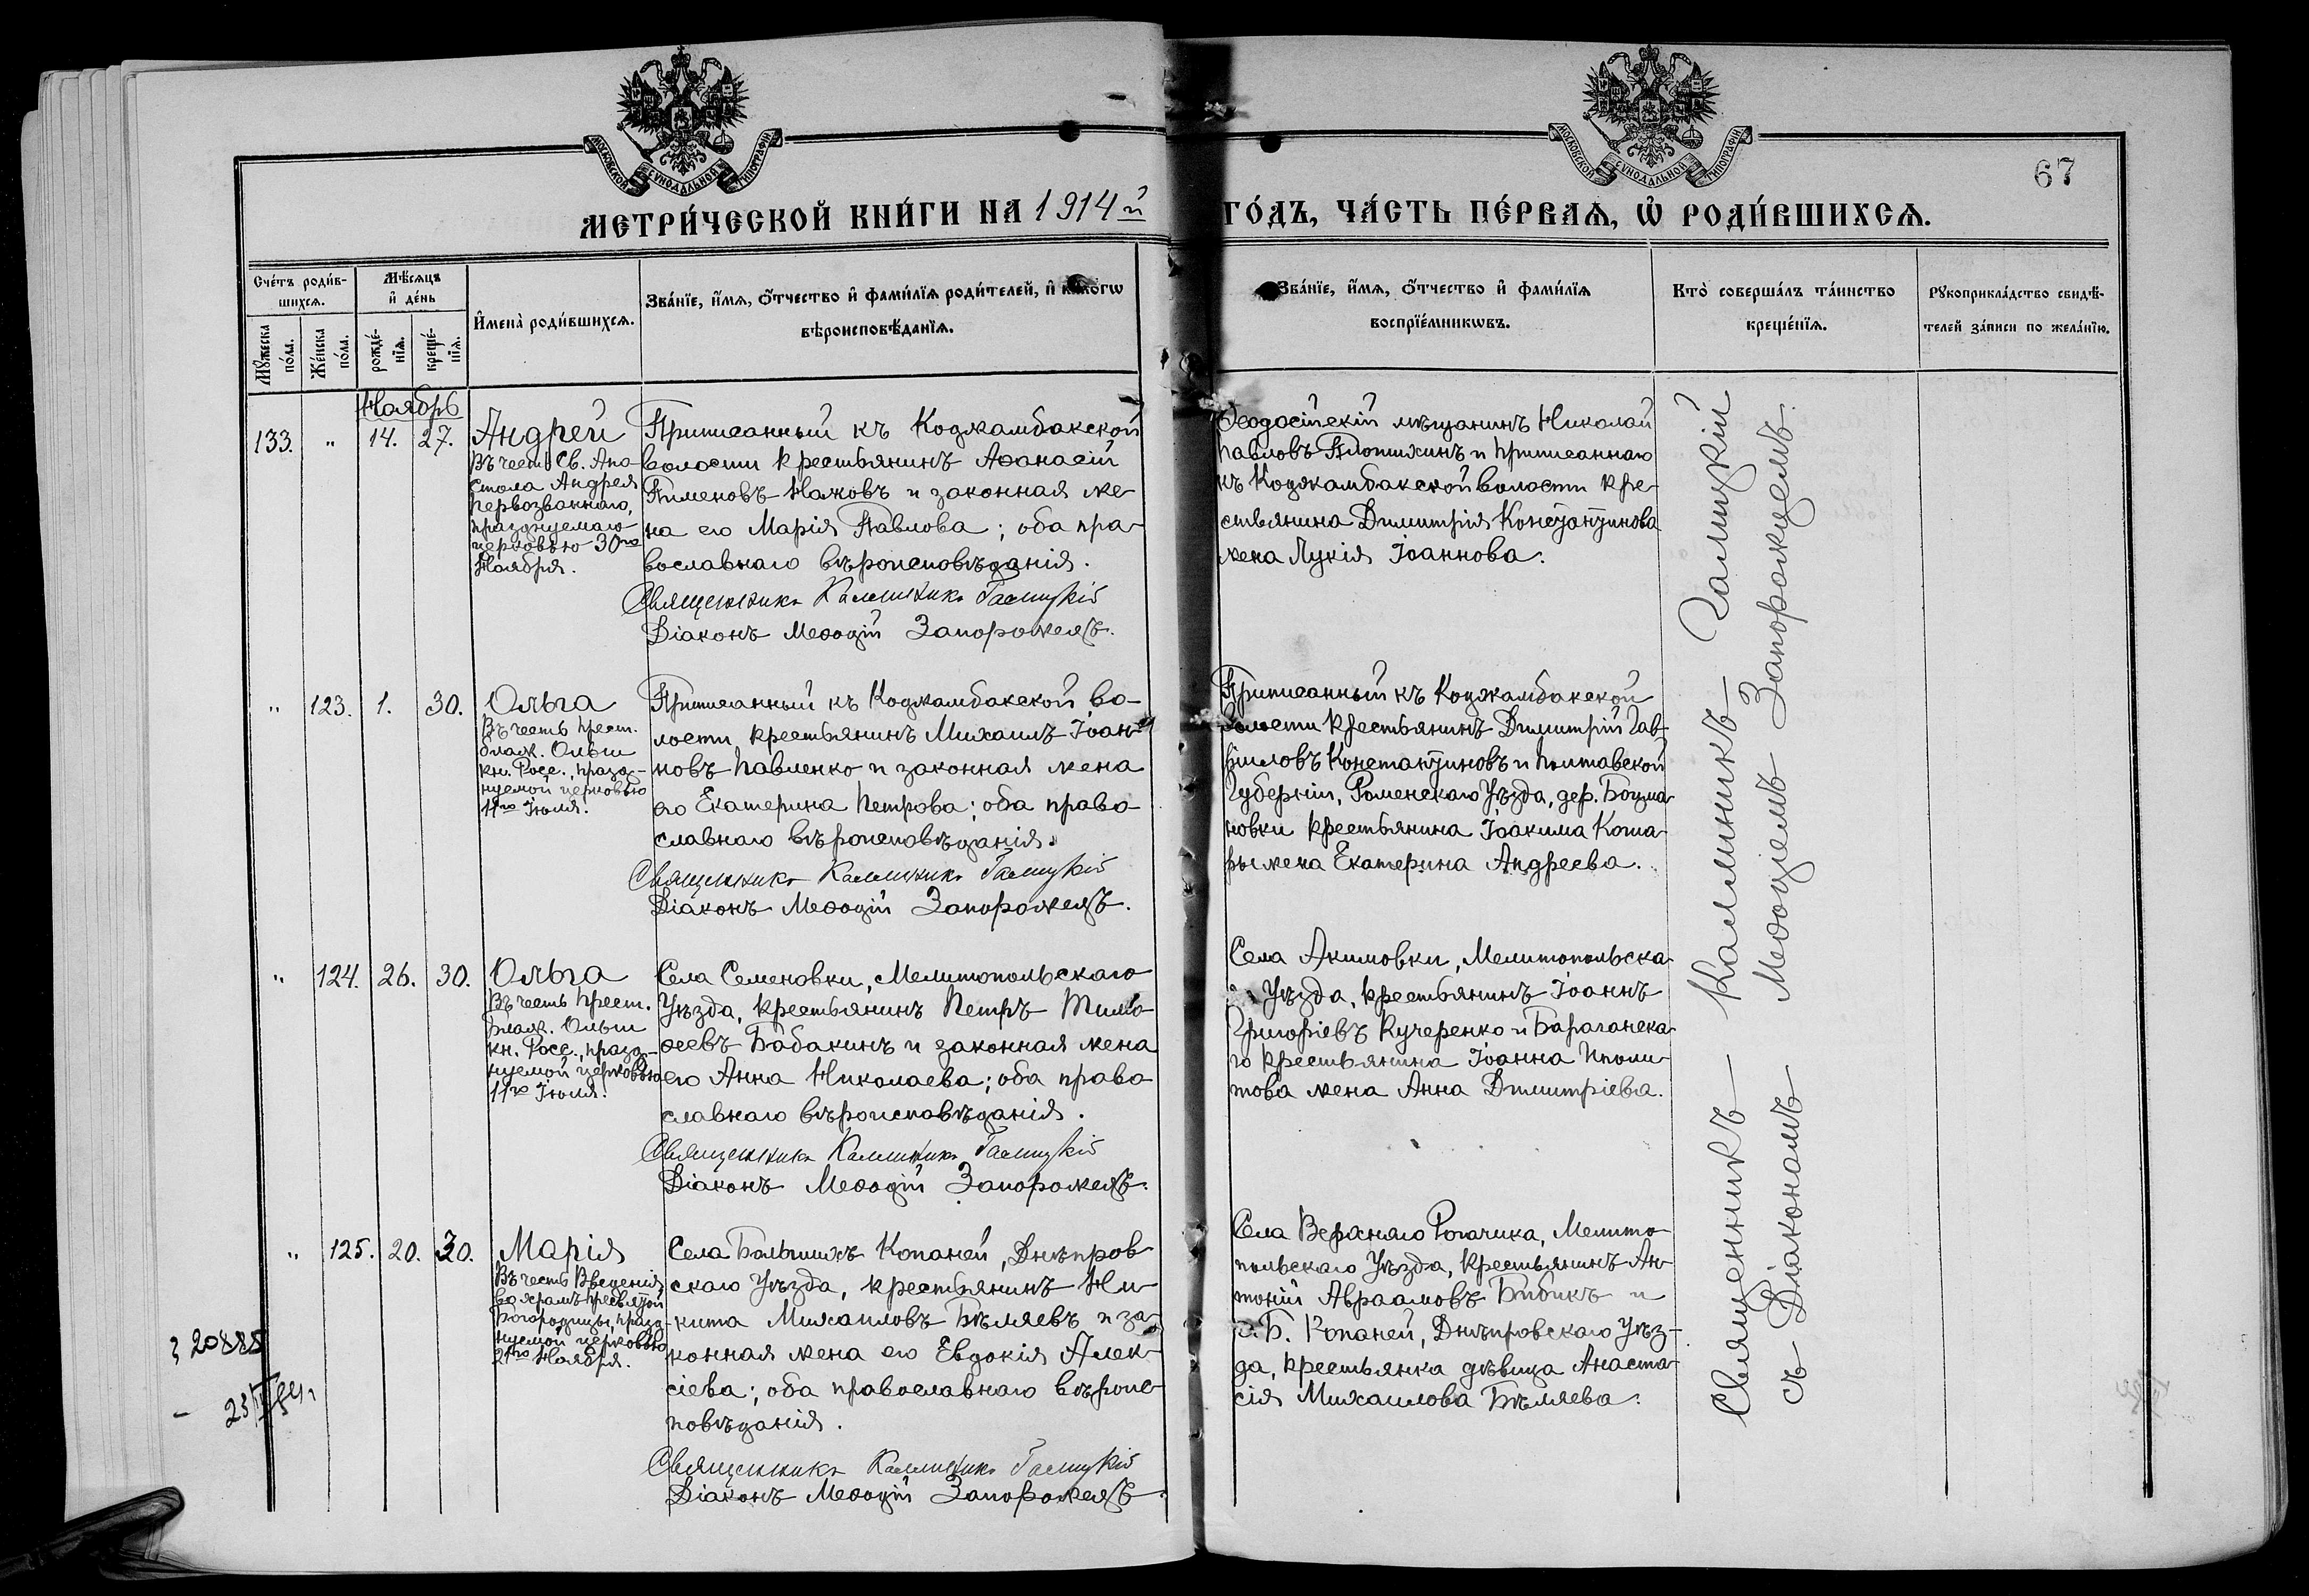 МОСКОВСКОЙ СѴНОДАЛЬНОЙ ТИПОГРАФІИ
МОСКОВСКОЙ СѴНОДАЛЬНОЙ ТИПОГРАФІИ
67
МЕТРИ́ЧЕСКОЙ КНИ́ГИ НА 1914й
ГО́ДЪ, ЧА́СТЬ ПЕ́РВАѦ, Ѡ҆ РОДИ́ВШИХСѦ.
Сче́тъ роди́в-
шихсѧ.
Мѣ́сѧцъ
и҆ де́нь
Мꙋ́жеска
по́ла.
Же́нска
по́ла.
рожде́-
нїѧ.
креще́-
нїѧ.
И҆мена̀ роди́вшихсѧ.
Зва́нїе, и҆́мѧ, ѻ҆́тчество и҆ фами́лїѧ роди́телей, и҆ како́гѡ
вѣроисповѣ́данїѧ.
Зва́нїе, и҆́мѧ, ѻ҆́тчество и҆ фами́лїѧ
воспрїе́мникѡвъ.
Кто̀ соверша́лъ та́инство
креще́нїѧ.
Рꙋкоприкла́дство свидѣ́-
телей за́писи по жела́нїю.
Ноябрь
133. „ 14. 27. Андрей
Въ честь Св. Апо-
стола Андрея
Первозваннаго,
празднуемаго
церковью 30го
Ноября.
Приписанный къ Коджамбакской
волости крестьянинъ Аѳанасій
Пименовъ Нажовъ и законная же-
на его Марія Павлова; оба пра-
вославнаго вѣроисповѣданія.
Священникъ Каллиникъ Галицкій
Діаконъ Меѳодій Запорожецъ.
Ѳеодосійскій мѣщанинъ Николай
Павловъ Плотихинъ и приписаннаго
къ Коджамбакской волости кре-
стьянина Димитрія Константинова
жена Лукія Іоаннова.
„ 123. 1. 30. Ольга
Въ честь прест.
благ. Ольги
кн. Росс., празд-
нуемой церковью
11го Іюля.
Приписанный къ Коджамбакской во-
лости крестьянинъ Михаилъ Іоан-
новъ Павленко и законная жена
его Екатерина Петрова; оба право-
славнаго вѣроисповѣданія.
Священникъ Каллиникъ Галицкій
Діаконъ Меѳодій Запорожецъ.
Приписанный къ Коджамбакской
волости крестьянинъ Димитрій Гав-
риловъ Константиновъ и Полтавской
Губерніи, Роменскаго Уѣзда, дер.
новки крестьянина Іоакима Кота-
ры жена Екатерина Андреева.
„ 124. 26. 30. Ольга
Въ честь прест.
благ. Ольги
кн. Росс., празд-
нуемой церковью
11го Іюля.
Села Семеновки, Мелитопольскаго
Уѣзда, крестьянинъ Петръ Тимо-
ѳеевъ Бабакинъ и законная жена
его Анна Николаева; оба право
славнаго вѣроисповѣданія.
Священникъ Каллиникъ Галицкій
Діаконъ Меѳодій Запорожецъ.
Села Акимовки, Мелитопольска-
го Уѣзда, крестьянинъ Іоаннъ
Григоріевъ Кучеренко и Бараганска-
го крестьянина Іоанна Иполи-
това жена Анна Димитріева.
„ 125. 20. 30. Марія
Въ честь Введенія
во храмъ Пресвятой
Богородицы, празд-
нуемой церковью
21го Ноября.
Села Большихъ Копаней, Днѣпров
скаго Уѣзда, крестьянинъ Ни-
кита Михаиловъ Бѣляевъ и за-
конная жена его Евдокія Алек-
сіева; оба православнаго вѣроис-
повѣданія.
Священникъ Каллиникъ Галицкій
Діаконъ Меѳодій Запорожецъ
Села Верхняго Рогачика, Мелито-
польскаго Уѣзда, крестьянинъ Ан-
тоній Авраамовъ Бибикъ и
с. Б. Копаней, Днѣпровскаго Уѣз-
да, крестьянка дѣвица Анаста-
сія Михаилова Бѣляева.
Священникъ — Каллиникъ — Галицкій
съ Діакономъ Меѳодіемъ Запорожцемъ.